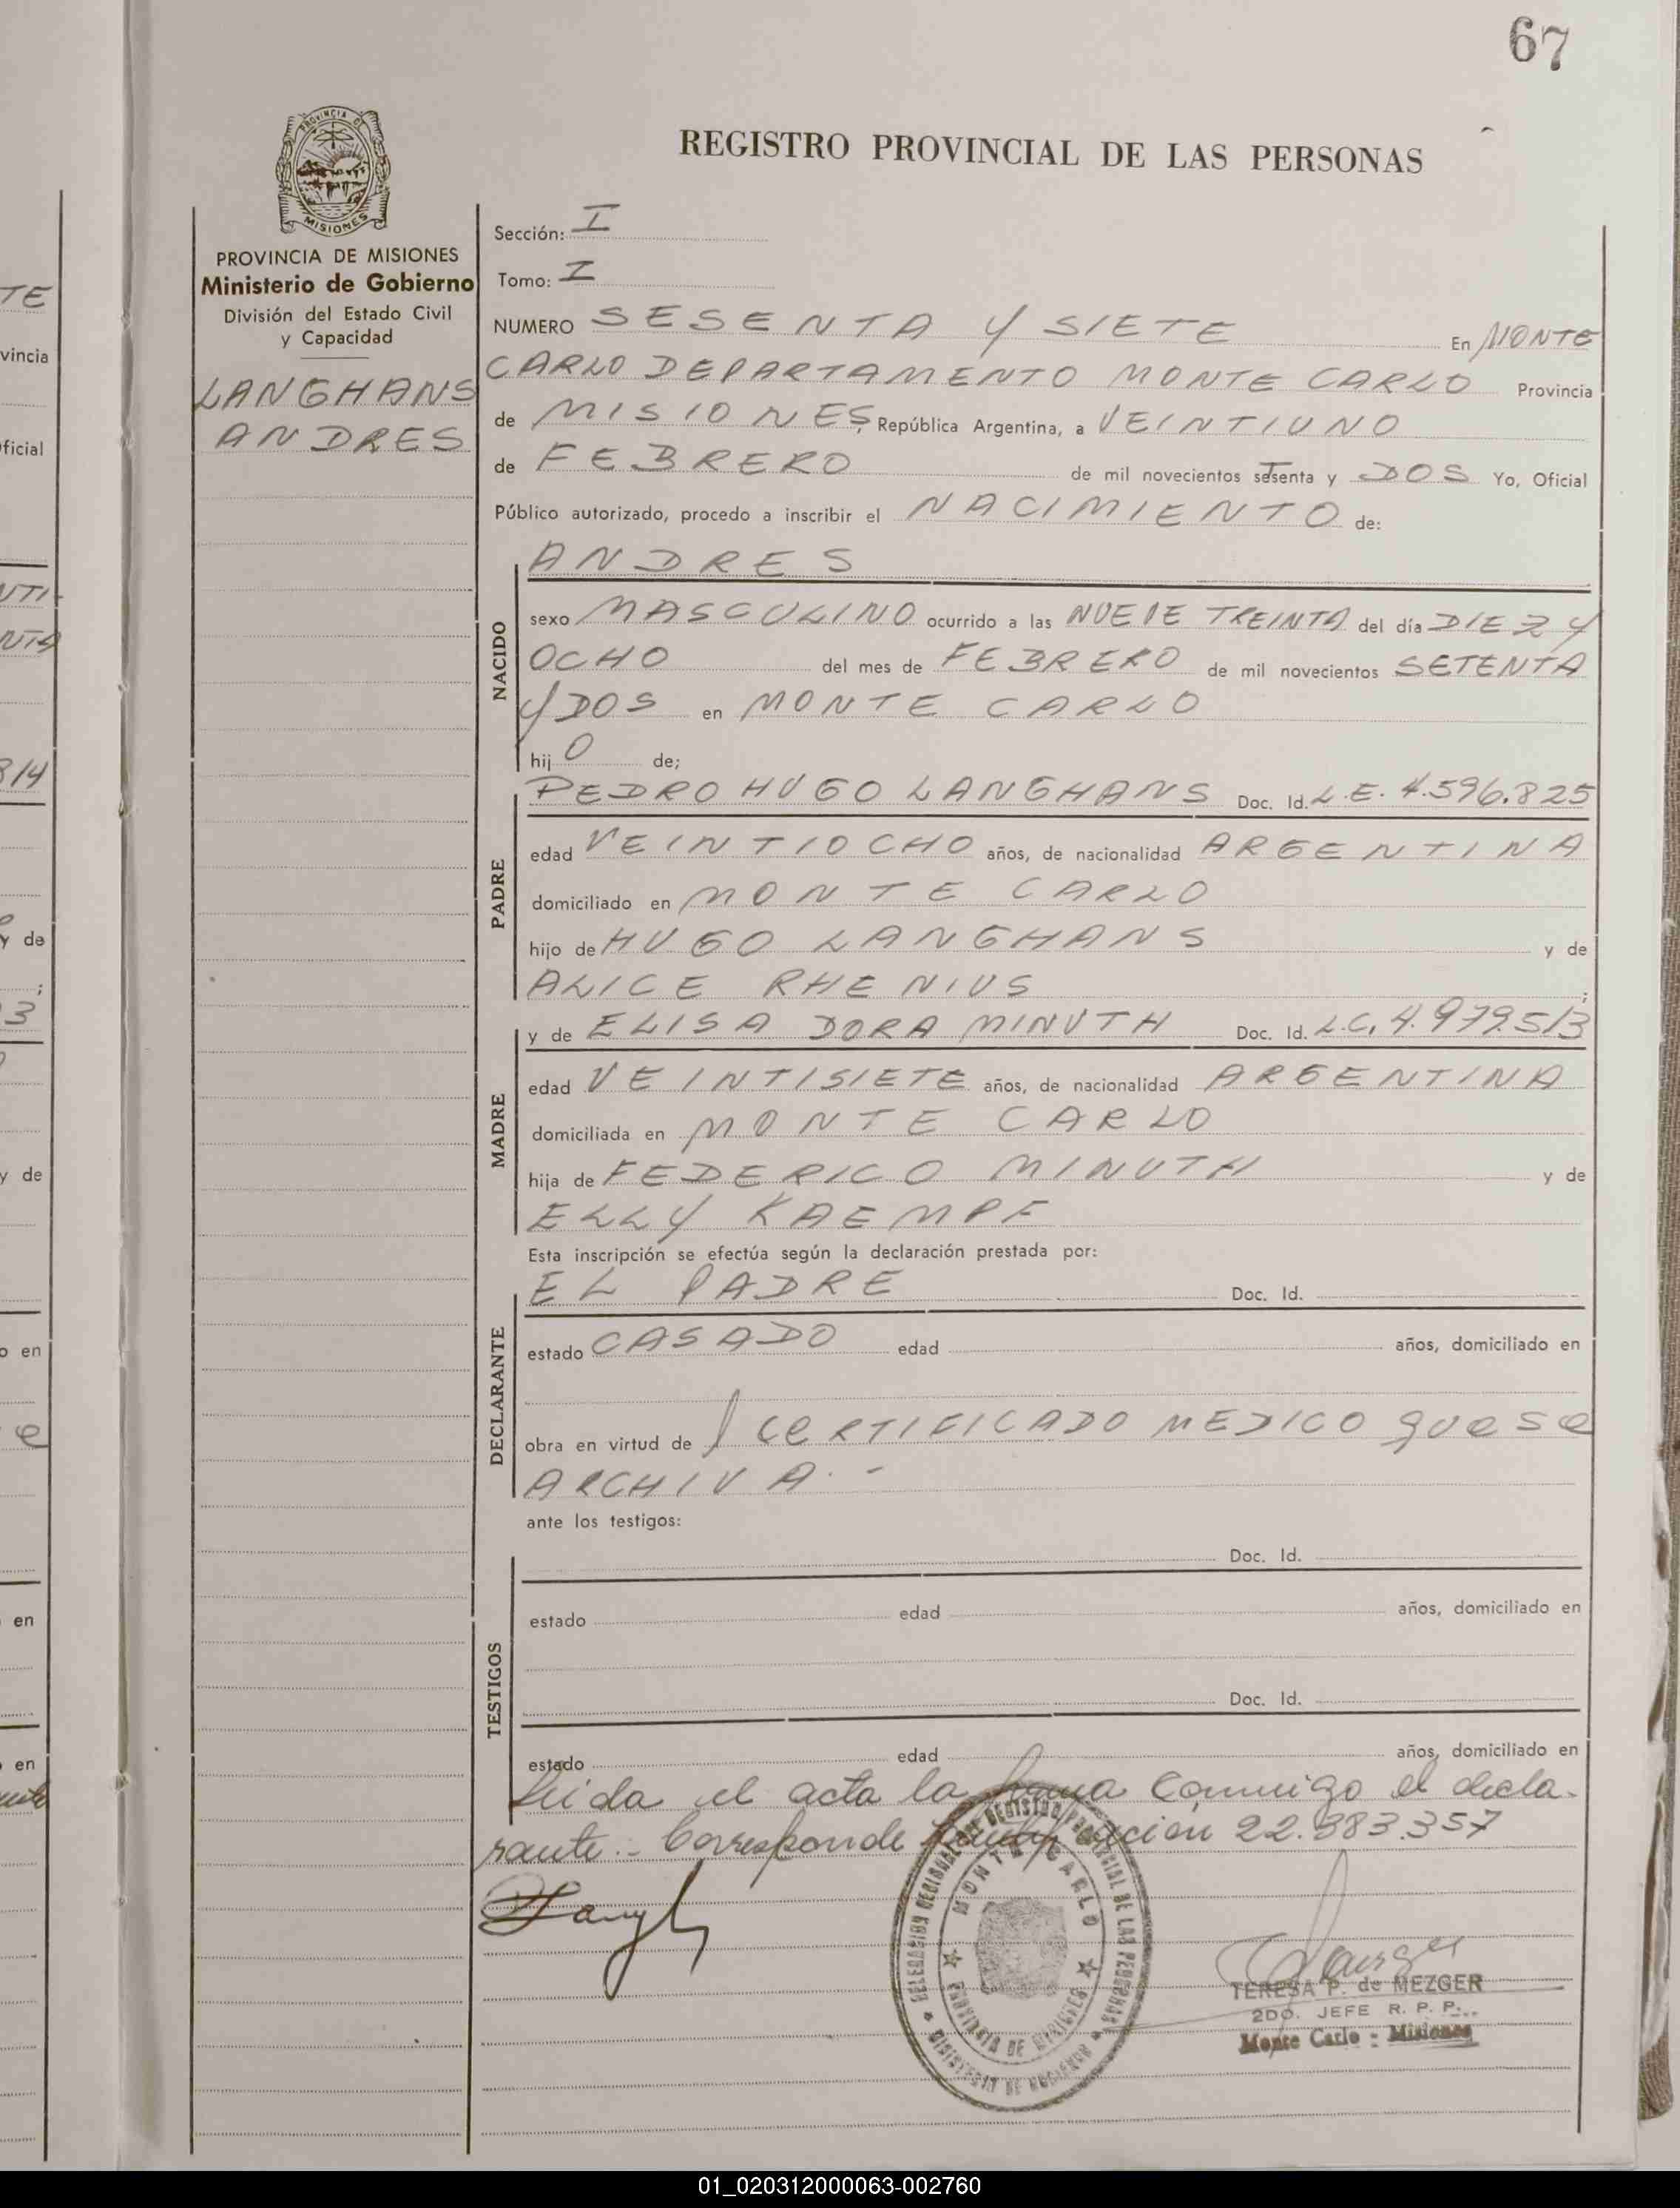 67
REGISTRO PROVINCIAL DE LAS PERSONAS
PROVINCIA DE MISIONES
Ministerio de Gobierno
División del Estado Civil
y Capacidad
LANGHANS
ANDRES
Sección: I
Tomo: I
NUMERO SESENTA Y SIETE En MONTE
CARLO DEPARTAMENTO MONTE CARLO Provincia
de MISIONES, República Argentina, a VEINTIUNO
de FEBRERO de mil novecientos setenta y DOS Yo, Oficial
Público autorizado, procedo a inscribir el NACIMIENTO de:
NACIDO
ANDRES
sexo MASCULINO ocurrido a las NUEVE TREINTA del día DIEZ Y
OCHO del mes de FEBRERO de mil novecientos SETENTA
Y DOS en MONTE CARLO
hijO de;
PADRE
PEDRO HUGO LANGHANS Doc. Id. L.E. 4.596.825
edad VEINTIOCHO años, de nacionalidad ARGENTINA
domiciliado en MONTE CARLO
hijo de HUGO LANGHANS y de
ALICE RHENIUS ;
MADRE
y de ELISA DORA MINUTH Doc. Id. L.C. 4.979.513
edad VEINTISIETE años, de nacionalidad ARGENTINA
domiciliada en MONTE CARLO
hija de FEDERICO MINUTH y de
ELLY KAEMPF
Esta inscripción se efectúa según la declaración prestada por:
DECLARANTE
EL PADRE Doc. Id.
estado CASADO edad años, domiciliado en
obra en virtud de CERTIFICADO MEDICO que se
ARCHIVA.-
ante los testigos:
TESTIGOS
Doc. Id.
estado edad años, domiciliado en
Doc. Id.
estado edad años, domiciliado en
Leida el acta la firma conmigo el decla-
rante.- Corresponde 22.383.357
MONTE CARLO
TERESA P. de MEZGER
2DO. JEFE R. P. P.
Monte Carlo - Misiones
01_020312000063-002760